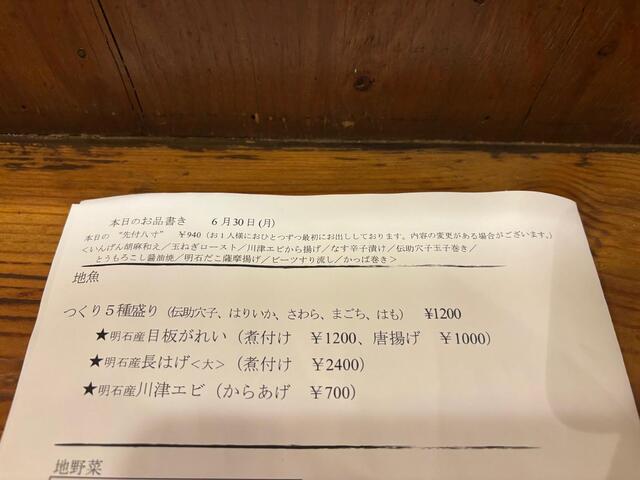 本日のお品書き　6月30日(月)
本日の "先付八寸"　￥940（お1人様におひとつずつ最初にお出ししております。内容の変更がある場合がございます。）
＜いんげん胡麻和え／玉ねぎロースト／川津エビから揚げ／なす辛子漬け／伝助穴子玉子巻き／
とうもろこし醤油焼／明石だこ薩摩揚げ／ビーツすり流し／かっぱ巻き＞
地魚
つくり５種盛り（伝助穴子、はりいか、さわら、まごち、はも）　¥1200
★明石産目板がれい（煮付け　￥1200、唐揚げ　￥1000）
★明石産長はげ＜大＞（煮付け　￥2400）
★明石産川津エビ（からあげ　￥700）
地野菜